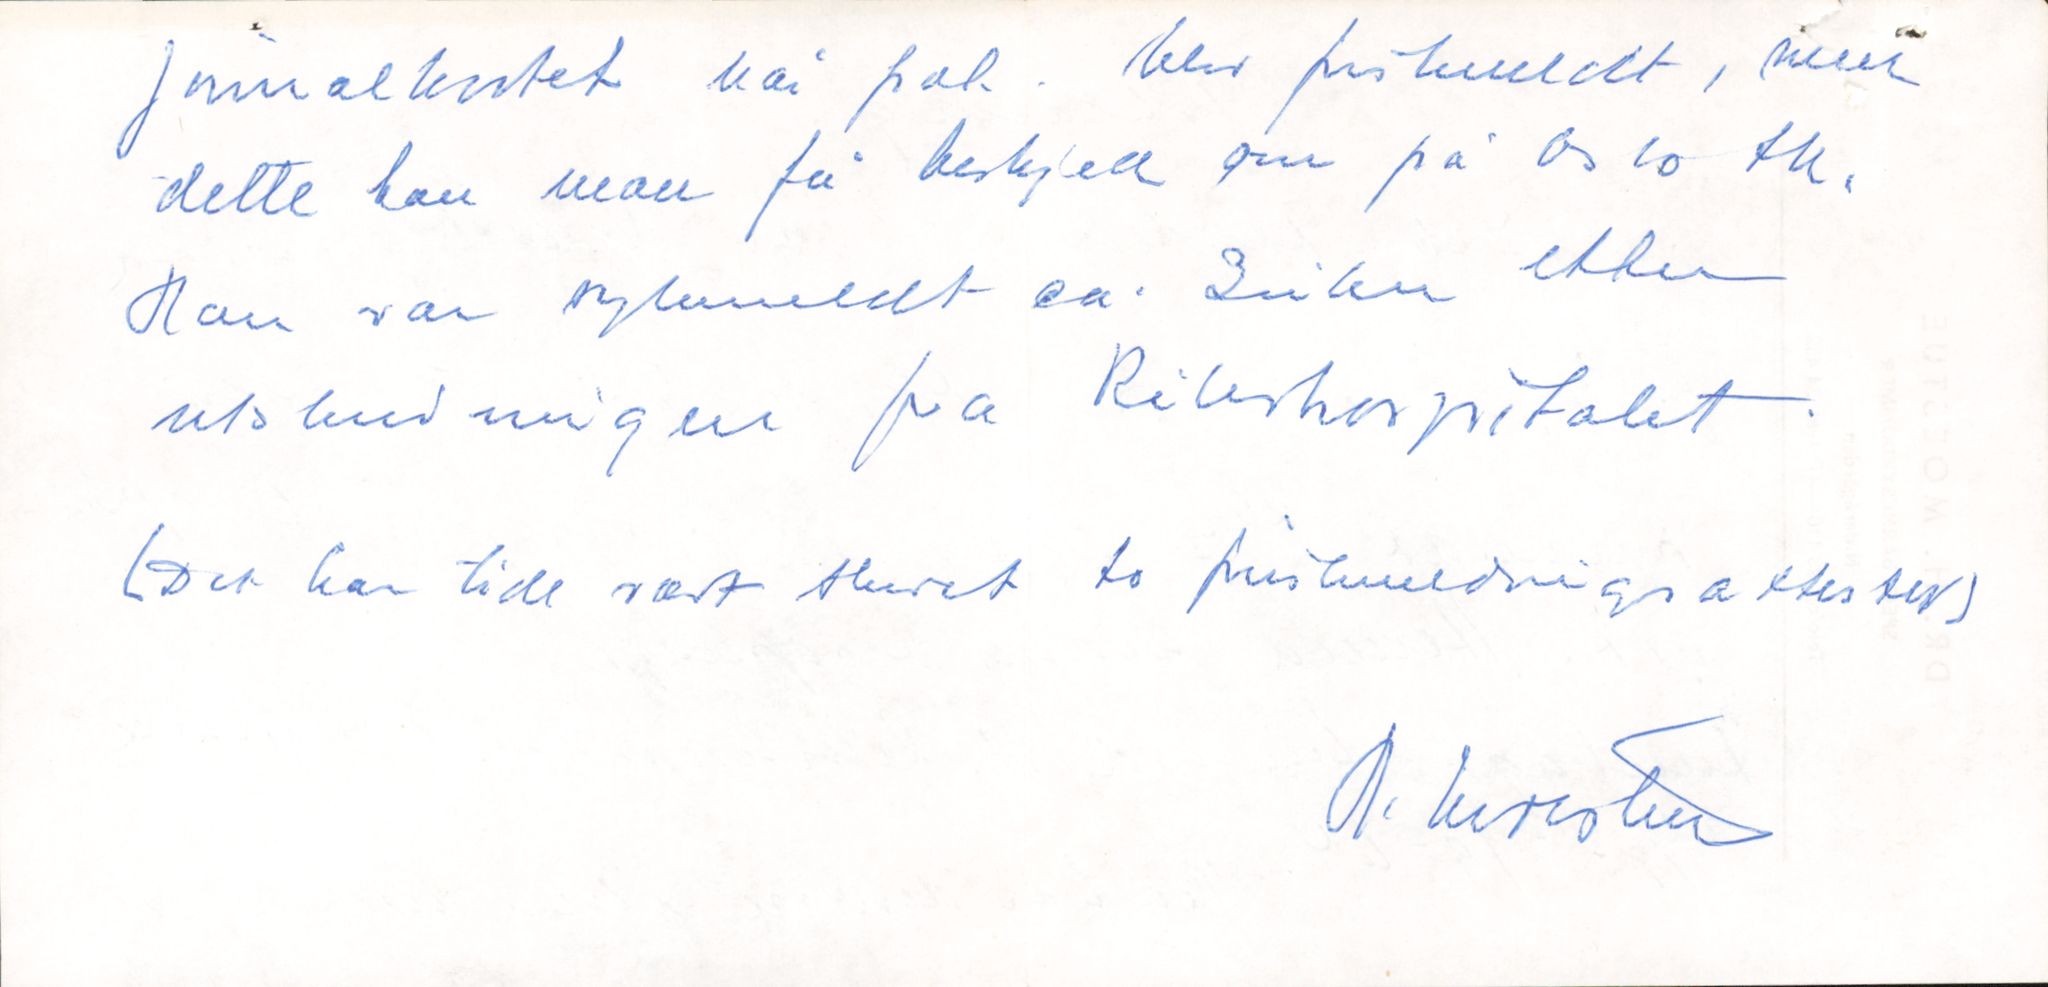 journalkortet når pas. blev friskmeldt, men
dette kan man få beskjed om på Oslo tk.
Han var sykmeldt ca. 3 uker etter
utskrivningen fra Rikshospitalet.
(Det har vært skrevet to friskmeldningsattester)
DR. MOESTUE